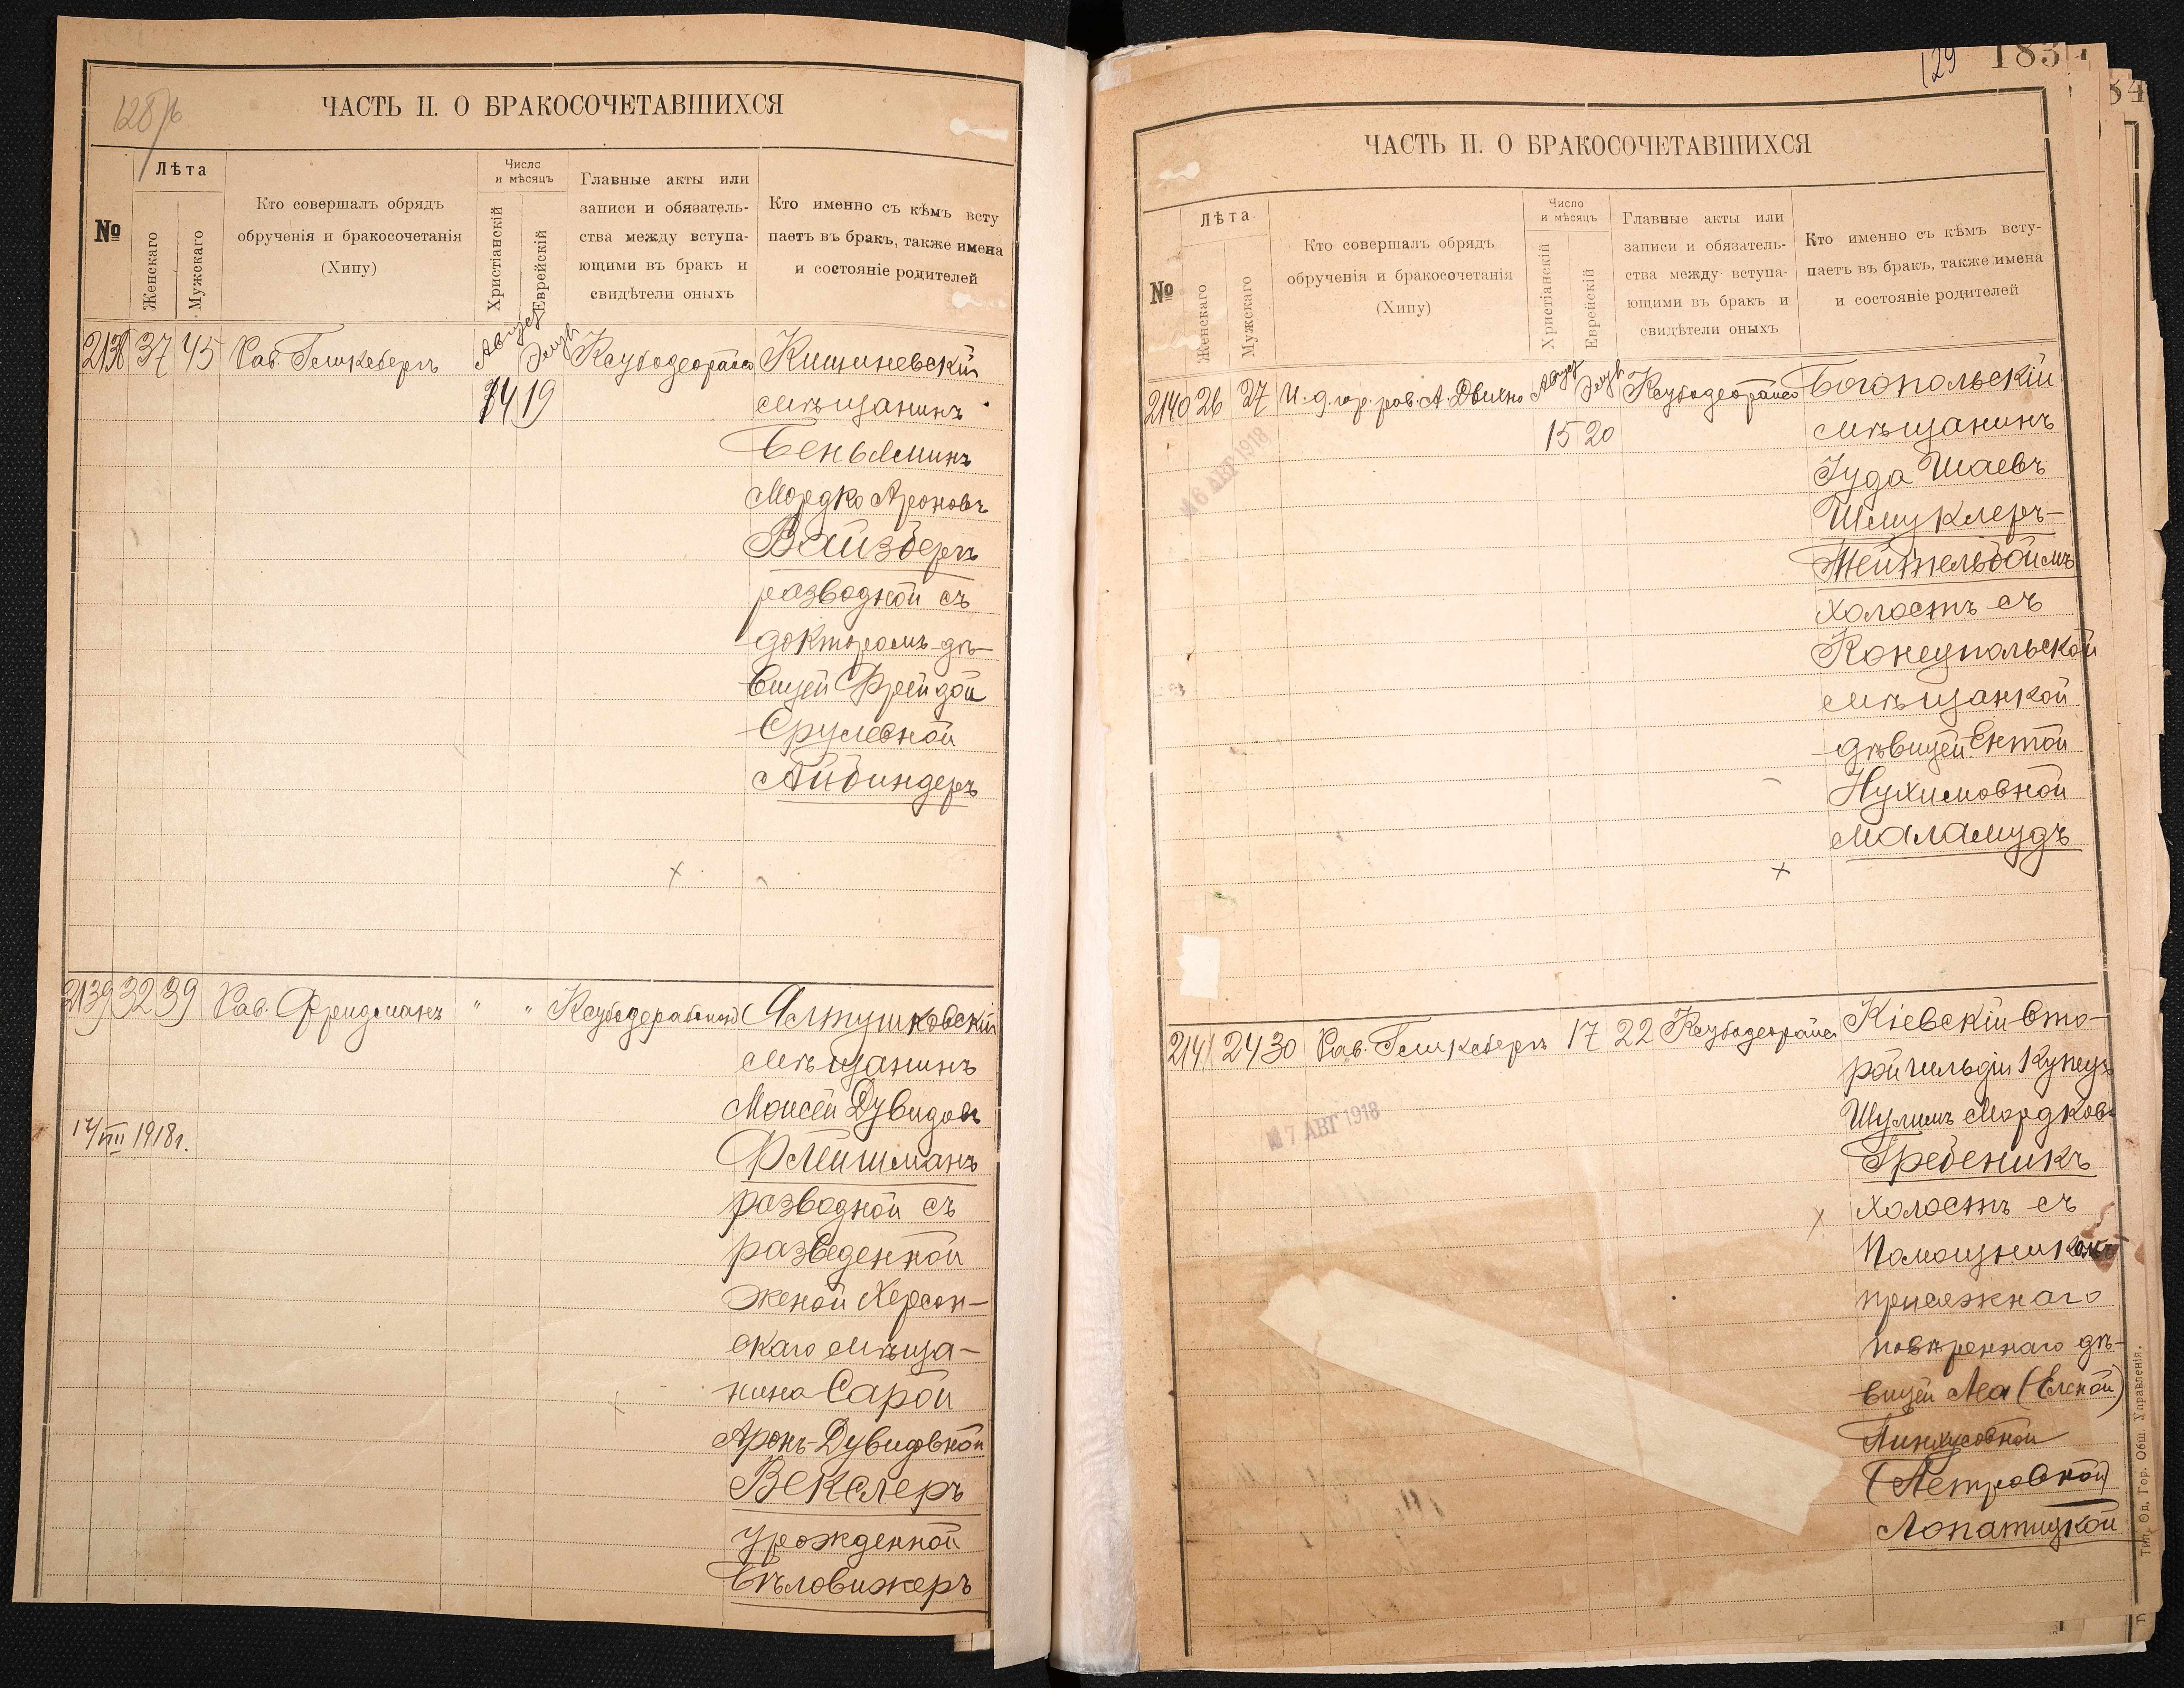 128/б
ЧАСТЬ II. О БРАКОСОЧЕТАВШИХСЯ
№
Лѣта
Женскаго
Мужскаго
Кто совершалъ обрядъ
обрученія и бракосочетанія
(Хипу)
Число
и мѣсяцъ
Христіанскій
Еврейскій
Главные акты или
записи и обязатель-
ства между вступа-
ющими въ бракъ и
свидѣтели оныхъ
Кто именно съ кѣмъ всту
паетъ въ бракъ, также имена
и состояніе родителей
2138 37 45 Рав. Гликсбергъ Август Элул Ксубодеорайсо Кишиневскій
14 19 мѣщанинъ
Беньяминъ
Мордко Ароновъ
Вайзбергъ
разводной съ
докторомъ дѣ-
вицей Фрейдой
Срулевной
Айбиндеръ
2139 32 39 Рав. Фридманъ " " Ксубодерабонон Ялтушковскій
мѣщанинъ
Моисей Дувидовъ
14/VIII 1918г.
Флейшманъ
разводной съ
разведенной
женой Херсон-
скаго мѣща-
нина Сарой
Аронъ-Дувидовной
Векслеръ
урожденной
Бѣловижеръ
129 183
84
ЧАСТЬ II. О БРАКОСОЧЕТАВШИХСЯ
№
Лѣта
Женскаго
Мужскаго
Кто совершалъ обрядъ
обрученія и бракосочетанія
(Хипу)
Число
и мѣсяцъ
Христіанскій
Еврейскій
Главные акты или
записи и обязатель-
ства между вступа-
ющими въ бракъ и
свидѣтели оныхъ
Кто именно съ кѣмъ всту-
паетъ въ бракъ, также имена
и состояніе родителей
2140 26 27 И. д. гор. рав. А. Август Элул Ксубодеорайсо Богопольскій
15 20 мѣщанинъ
16 АВГ 1918
Іуда Шаевъ
Шмуклеръ-
Тейтельбоймъ
холостъ съ
Конецпольской
мѣщанкой
дѣвицей Ентой
Нухимовной
Маламудъ
2141 24 30 Рав. Гликсбергъ 17 22 Ксубодеорайсо Кіевскій вто-
рой гильдіи купецъ
17 АВГ 1918
Шулимъ Мордковъ
Гребеникъ
холостъ съ
Помощникомъ
присяжнаго
повѣреннаго дѣ-
вицей Леа (Еленой)
Пинхусовной
(Петровной)
Лопатицкой
Тип. Од. Гор. Общ. Управленія.